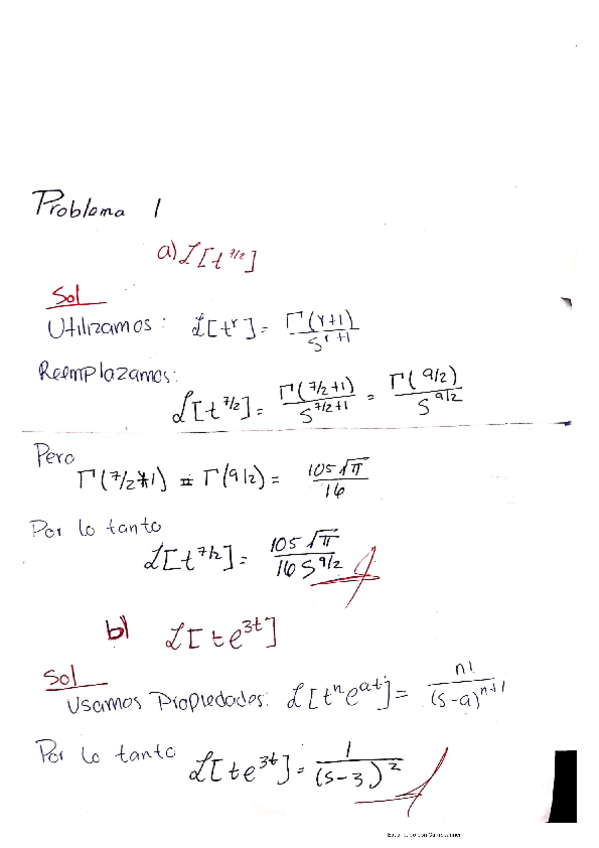 Problema 1
a) ℒ[t^{7/2}]
Sol
Utilizamos: ℒ[t^r] = Γ(r+1)/S^{r+1}
Reemplazamos:
ℒ[t^{7/2}] = Γ(7/2+1)/S^{7/2+1} = Γ(9/2)/S^{9/2}
Pero
Γ(7/2+1) = Γ(9/2) = 105√π/16
Por lo tanto
ℒ[t^{7/2}] = 105√π/16 S^{9/2}
b) ℒ[te^{3t}]
Sol
Usamos Propiedades: ℒ[t^n e^{at}] = n!/(s-a)^{n+1}
Por lo tanto ℒ[te^{3t}] = 1/(s-3)^2